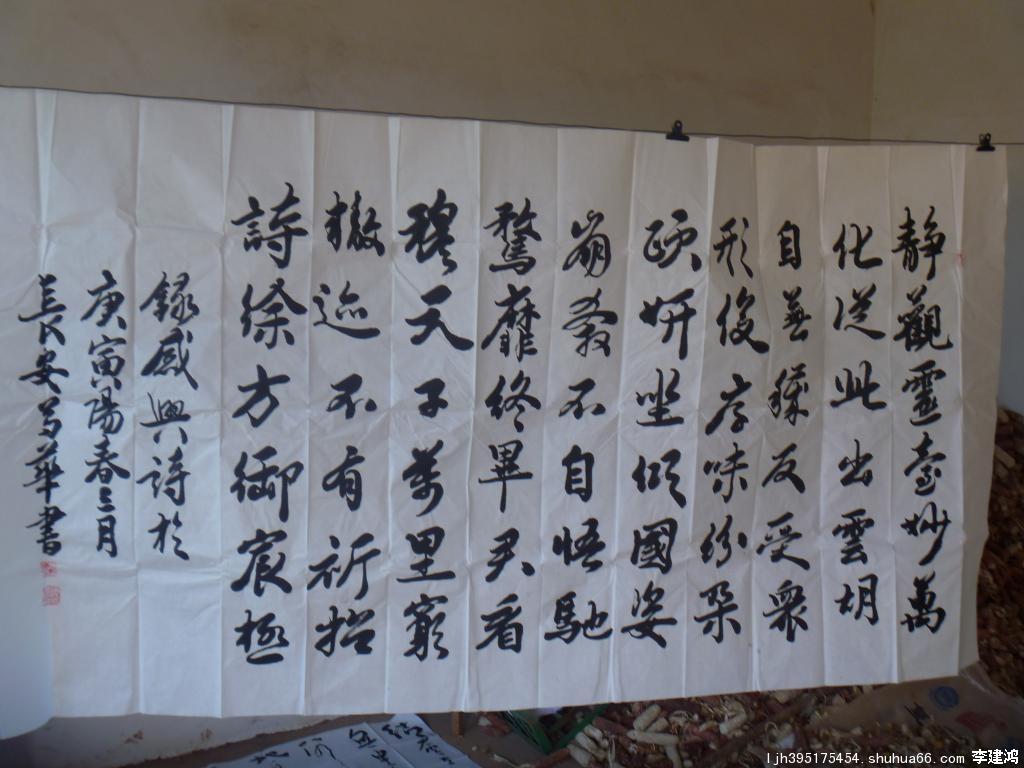 静觀靈臺妙萬
化從此出雲胡
自蕪穢反受衆
形役厚味紛朵
頤妍坐傾國姿
崩奔不自悟馳
騖靡終畢尹看
穆天子萬里窮
轍迹不有祈招
詩徐方御宸極
録感興詩於
庚寅陽春三月
長安華書
ljh395175454.shuhua66.com 李建鸿